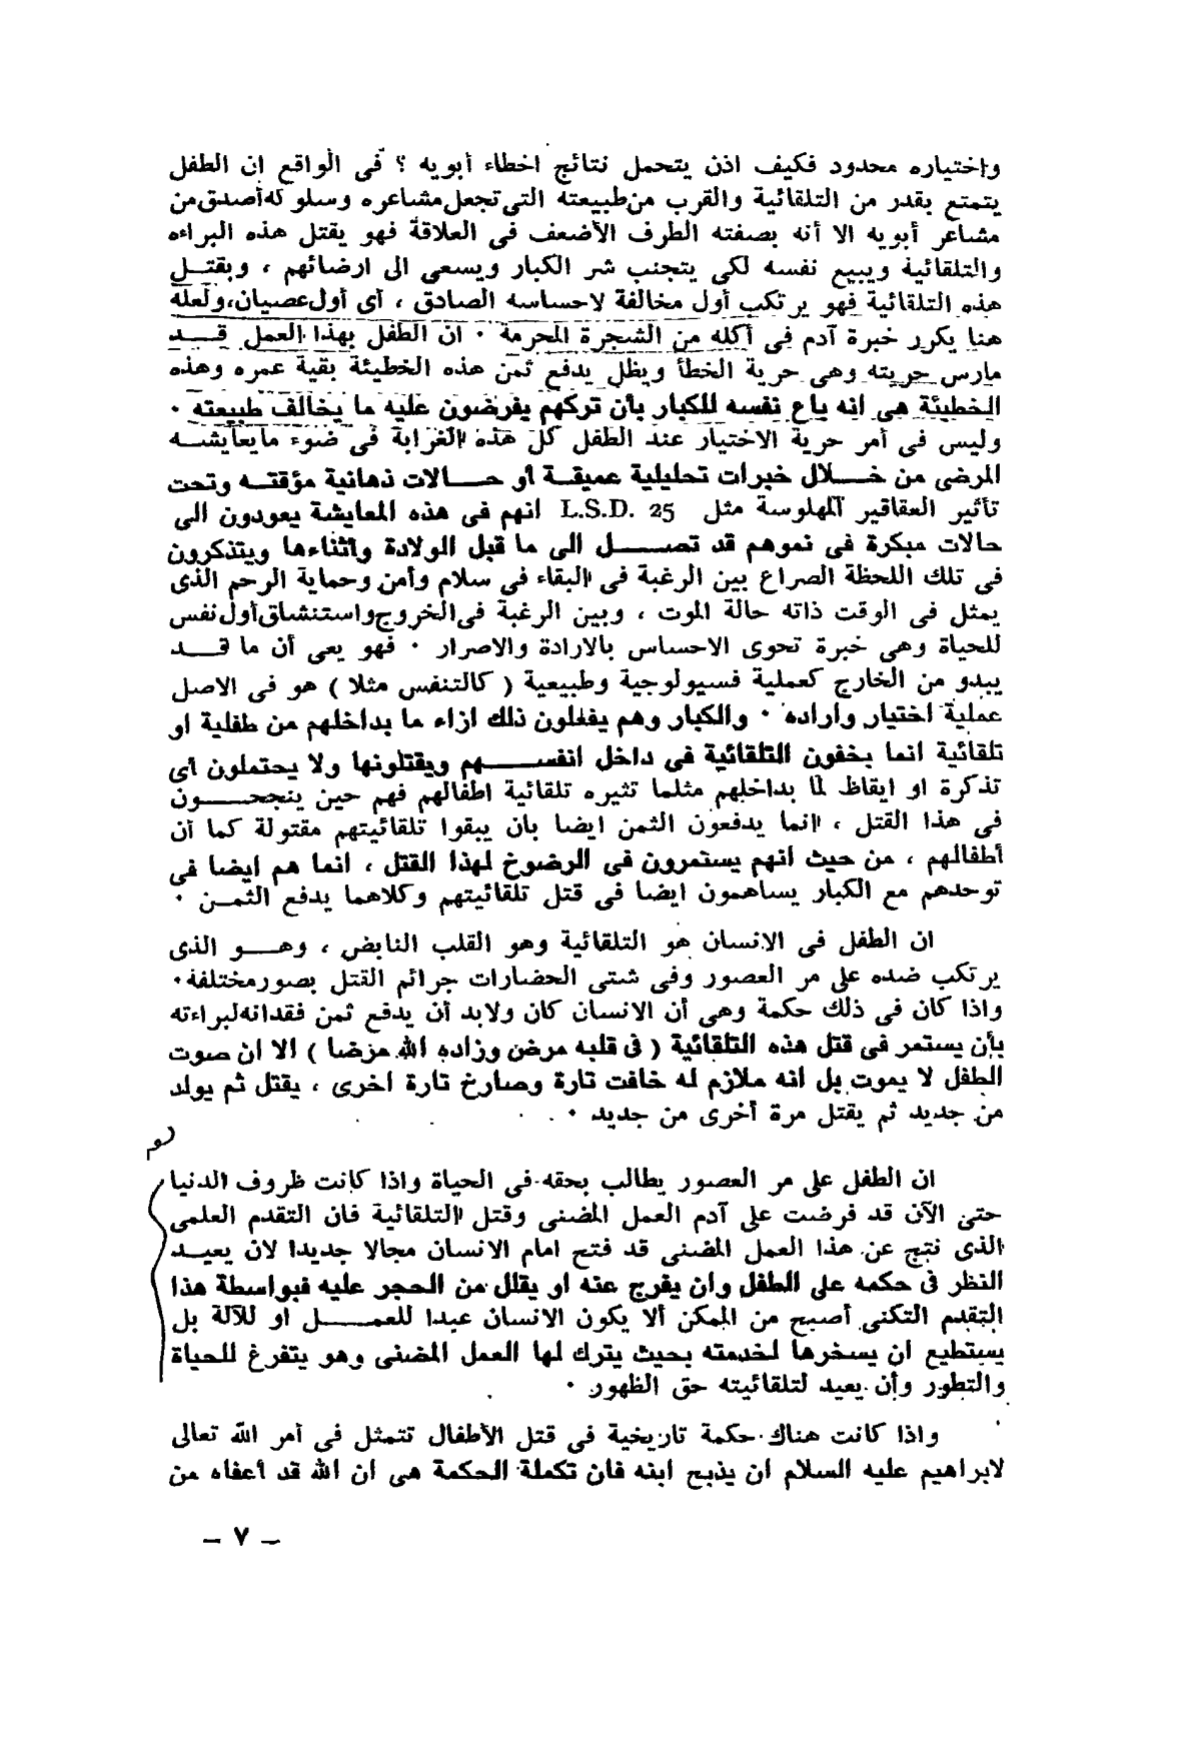 واختياره محدود فكيف اذن يتحمل نتائج اخطاء أبويه ؟ فى الواقع ان الطفل
يتمتع بقدر من التلقائية والقرب من طبيعته التى تجعل مشاعره وسلوكه أصدق من
مشاعر أبويه الا أنه بصفته الطرف الأضعف فى العلاقة فهو يقتل هذه البراءه
والتلقائية ويبيع نفسه لكى يتجنب شر الكبار ويسعى الى ارضائهم ، وبقتــل
هذه التلقائية فهو يرتكب أول مخالفة لاحساسه الصادق ، أى أول عصيان، ولعله
هنا يكرر خبرة آدم فى أكله من الشجرة المحرمة ٠ ان الطفل بهذا العمل قــد
مارس حريته وهى حرية الخطأ ويظل يدفع ثمن هذه الخطيئة بقية عمره وهذه
الخطيئة هى انه باع نفسه للكبار بأن تركهم يفرضون عليه ما يخالف طبيعته ٠
وليس فى أمر حرية الاختيار عند الطفل كل هذه الغرابة فى ضوء مايعايشــه
المرضى من خــلال خبرات تحليلية عميقــة أو حــالات ذهانية مؤقتــه وتحت
تأثير العقاقير المهلوسة مثل L.S.D. 25 انهم فى هذه المعايشة يعودون الى
حالات مبكرة فى نموهم قد تصــل الى ما قبل الولادة واثناءها ويتذكرون
فى تلك اللحظة الصراع بين الرغبة فى البقاء فى سلام وأمن وحماية الرحم الذى
يمثل فى الوقت ذاته حالة الموت ، وبين الرغبة فى الخروج واستنشاق أول نفس
للحياة وهى خبرة تحوى الاحساس بالارادة والاصرار ٠ فهو يعى أن ما قــد
يبدو من الخارج كعملية فسيولوجية وطبيعية ( كالتنفس مثلا ) هو فى الاصل
عملية اختيار واراده ٠ والكبار وهم يفعلون ذلك ازاء ما بداخلهم من طفلية او
تلقائية انما يخفون التلقائية فى داخل انفســهم ويقتلونها ولا يحتملون أى
تذكرة او ايقاظ لما بداخلهم مثلما تثيره تلقائية اطفالهم فهم حين ينجحــون
فى هذا القتل ، انما يدفعون الثمن ايضا بان يبقوا تلقائيتهم مقتولة كما أن
أطفالهم ، من حيث انهم يستمرون فى الرضوخ لهذا القتل ، انما هم ايضا فى
توحدهم مع الكبار يساهمون ايضا فى قتل تلقائيتهم وكلاهما يدفع الثمــن ٠
ان الطفل فى الانسان هو التلقائية وهو القلب النابض ، وهــو الذى
يرتكب ضده على مر العصور وفى شتى الحضارات جرائم القتل بصور مختلفة ٠
واذا كان فى ذلك حكمة وهى أن الانسان كان ولابد أن يدفع ثمن فقدانه لبراءته
بأن يستمر فى قتل هذه التلقائية ( فى قلبه مرض وزاده الله مرضا ) الا ان صوت
الطفل لا يموت بل انه ملازم له خافت تارة وصارخ تارة اخرى ، يقتل ثم يولد
من جديد ثم يقتل مرة أخرى من جديد ٠
ان الطفل على مر العصور يطالب بحقه فى الحياة واذا كانت ظروف الدنيا
حتى الآن قد فرضت على آدم العمل المضنى وقتل التلقائية فان التقدم العلمى
الذى نتج عن هذا العمل المضنى قد فتح امام الانسان مجالا جديدا لان يعيــد
النظر فى حكمه على الطفل وان يفرج عنه او يقلل من الحجر عليه فبواسطة هذا
التقدم التكنى أصبح من الممكن ألا يكون الانسان عبدا للعمــل او للآلة بل
يستطيع ان يسخرها لخدمته بحيث يترك لها العمل المضنى وهو يتفرغ للحياة
والتطور وأن يعيد لتلقائيته حق الظهور ٠
واذا كانت هناك حكمة تاريخية فى قتل الأطفال تتمثل فى أمر الله تعالى
لابراهيم عليه السلام ان يذبح ابنه فان تكملة الحكمة هى ان الله قد أعفاه من
– ٧ –